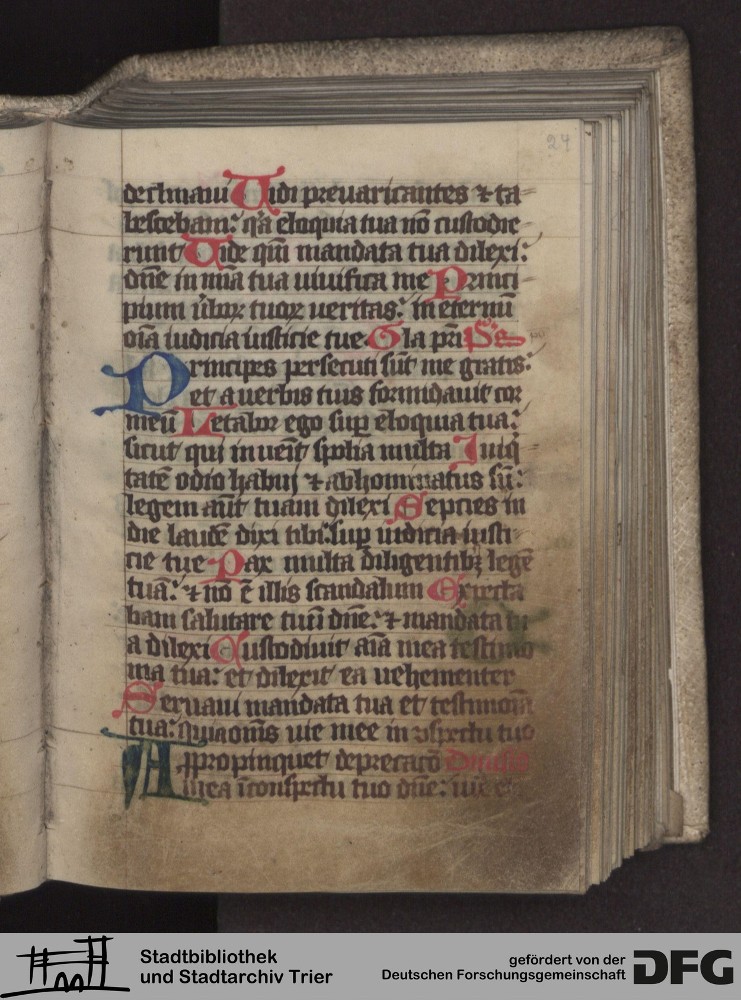 24
declinaui Uidi preuaricantes ⁊ ta
bescebam: qͥa eloquia tua nō custodie
runt Uide qm̄ mandata tua dilexi:
dn̄e in mīa tua uiuifica me Princi
pium ūboꝝ tuoꝝ ueritas: in eternū
oīa iudicia iusticie tue. Gla pr̄i
Principes persecuti sūt me gratis:
et a uerbis tuis formidauit cor
meū Letabor ego suꝑ eloquia tua:
sicut qui inueīt spolia multa Iniq̇
tatē odio habui ⁊ abhominatus sū:
legem aūt tuam dilexi Sepcies in
die laudē dixi tibi: suꝑ iudicia iusti
cie tue Pax multa diligentibꝫ legē
tuā: ⁊ nō ē illis scandalum Expecta
bam salutare tuū dn̄e: ⁊ mandata tu
a dilexi Custodiuit aīa mea testimo
nia tua: et dilexit ea uehementer
Seruaui mandata tua et testimoīa
tua: quia oms uie mee in ↄspectu tuo
Appropinquet deprecacō
mea īconspectu tuo dn̄e:
Stadtbibliothek
und Stadtarchiv Trier
gefördert von der
Deutschen Forschungsgemeinschaft
DFG